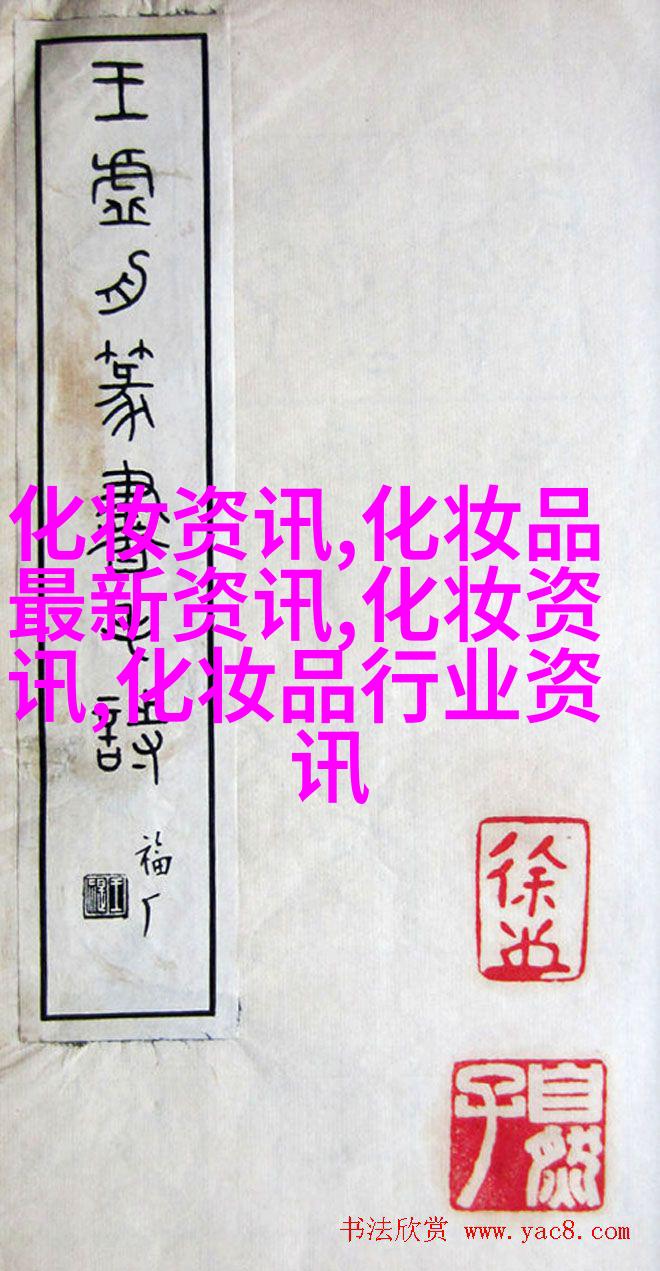 王虛舟篆書詩
福厂
化妆资讯,化妆品
最新资讯,化妆资
讯,化妆品行业资
讯
徐
自然子
书法欣赏 www.yac8.com